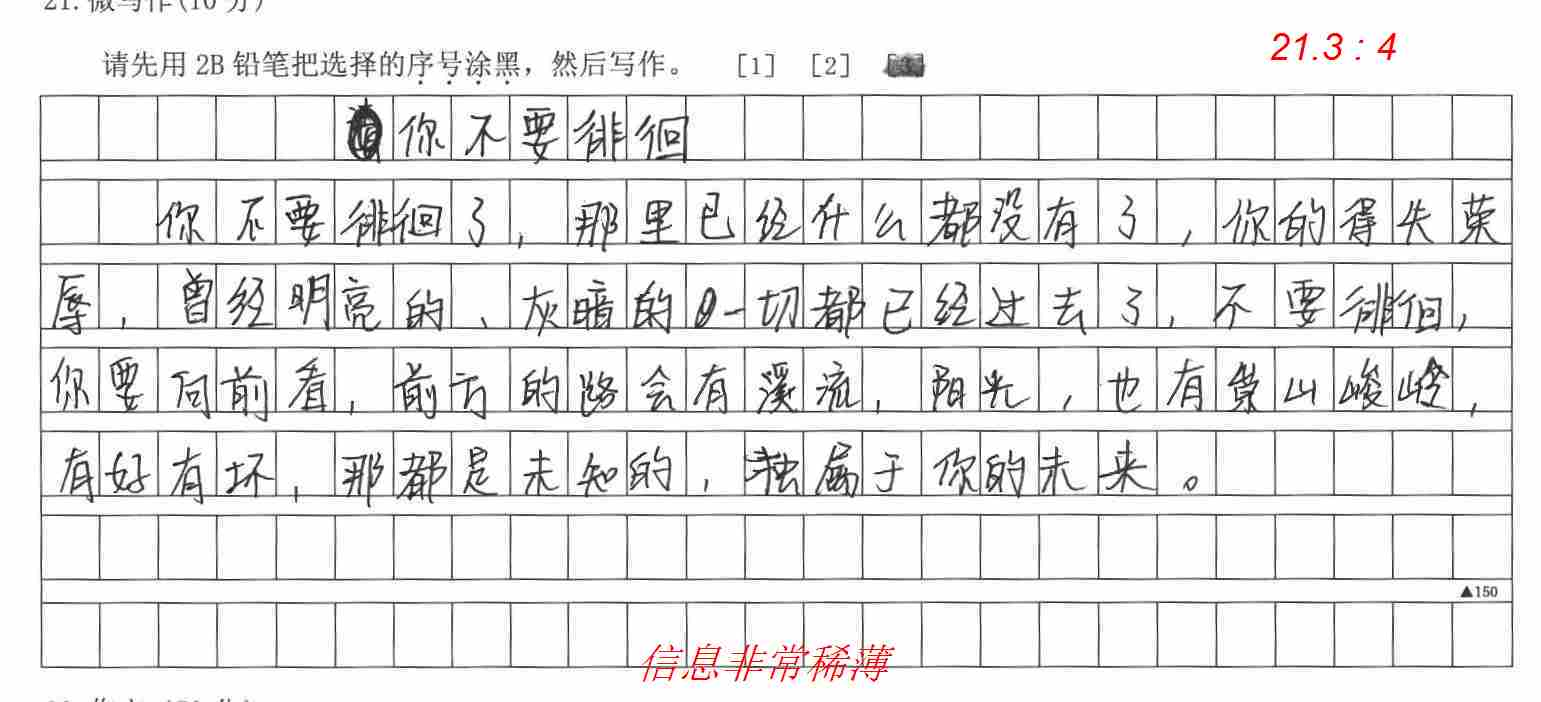 21.微写作(10分)
请先用2B铅笔把选择的序号涂黑，然后写作。 [1] [2] [3]
21.3 : 4
你不要徘徊
你不要徘徊了，那里已经什么都没有了，你的得失荣
辱，曾经明亮的、灰暗的一切都已经过去了，不要徘徊，
你要向前看，前方的路会有溪流，阳光，也有 山峻嶝，
有好有坏，那都是未知的，独属于你的未来。
▲150
信息非常稀薄